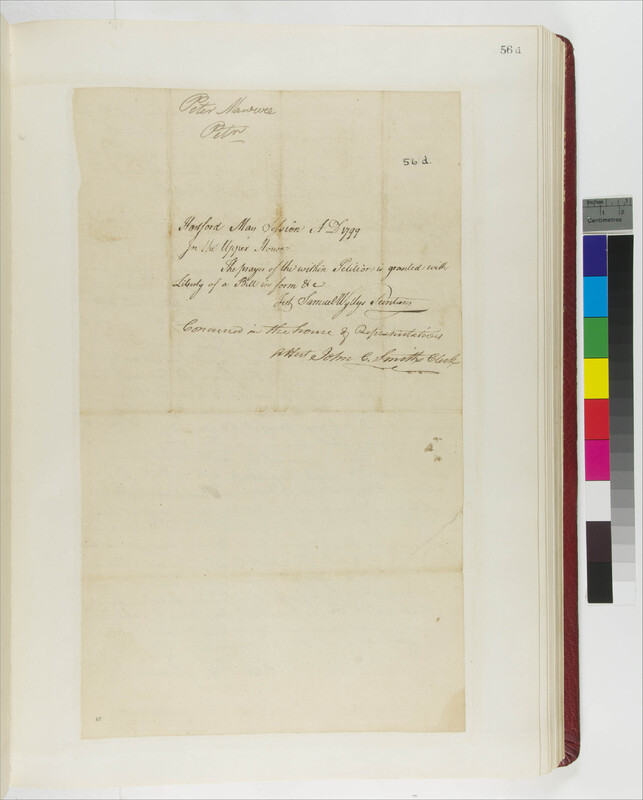 56 d
Peter Mawwee
Petn
56 d.
Hartford May Session A D 1799
In the Upper House
The prayer of the within Petition is granted with
Liberty of a Bill in form &c
Test Samuel Wyllys Secretary
Concurred in the house of Representatives
Attest John C. Smith Clerk
Inches
Centimetres